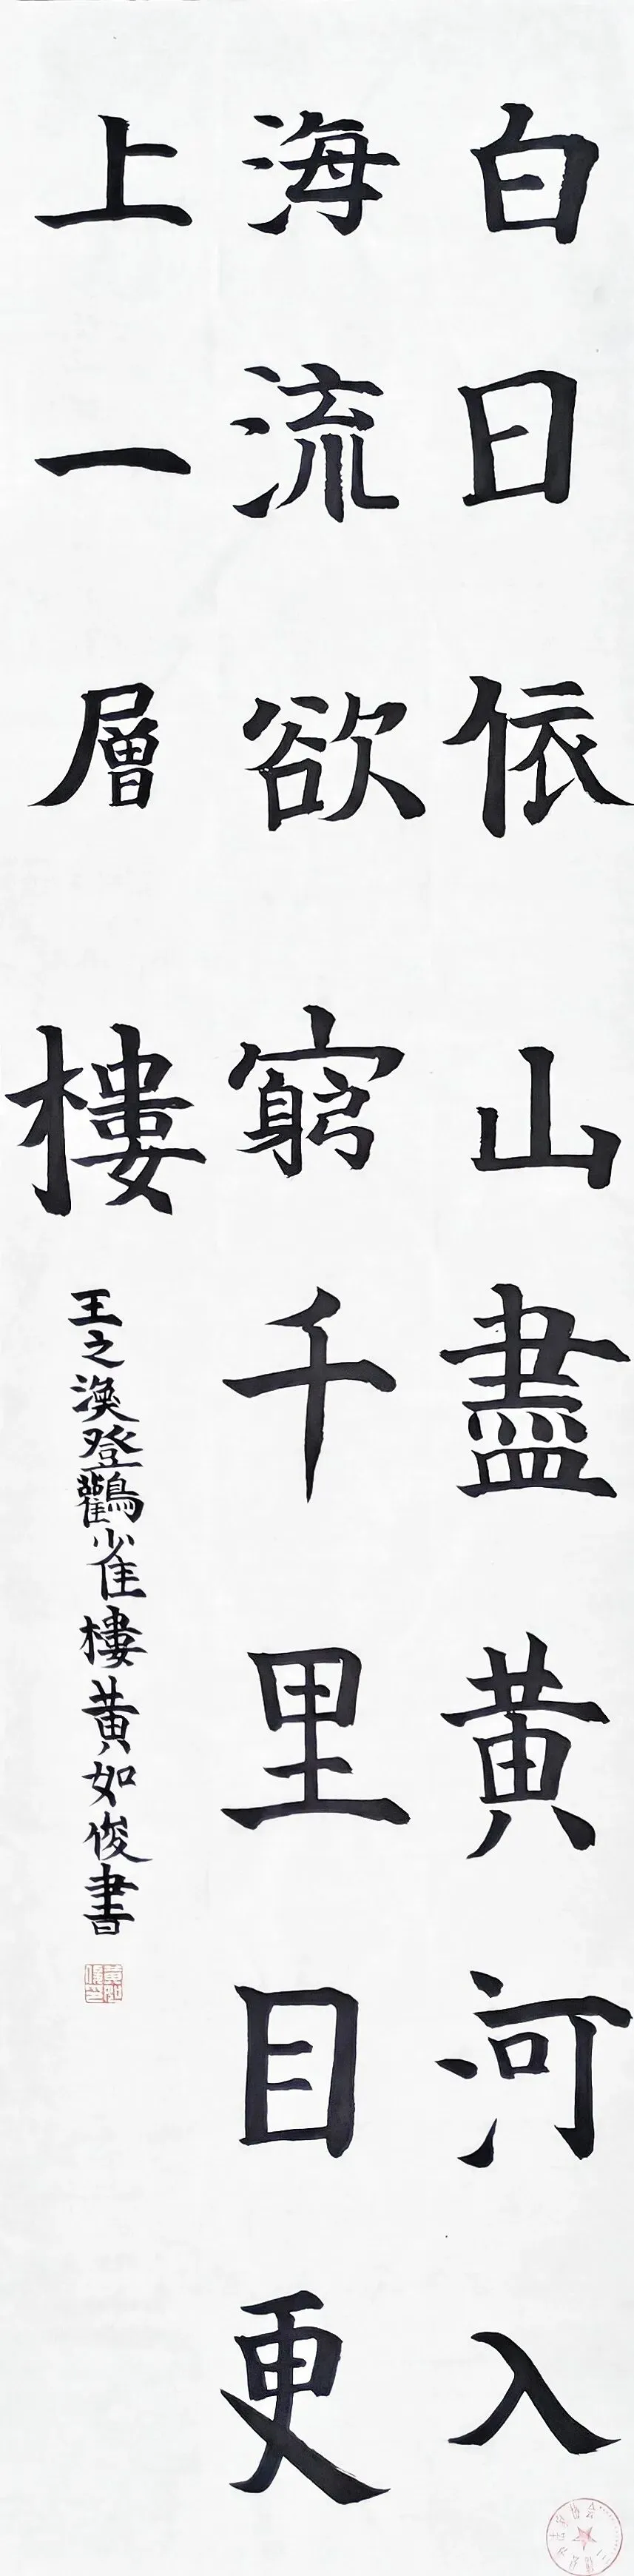 白日依山盡黃河入
海流欲窮千里目更
上一層樓
王之渙登鸛雀樓黃如俊書